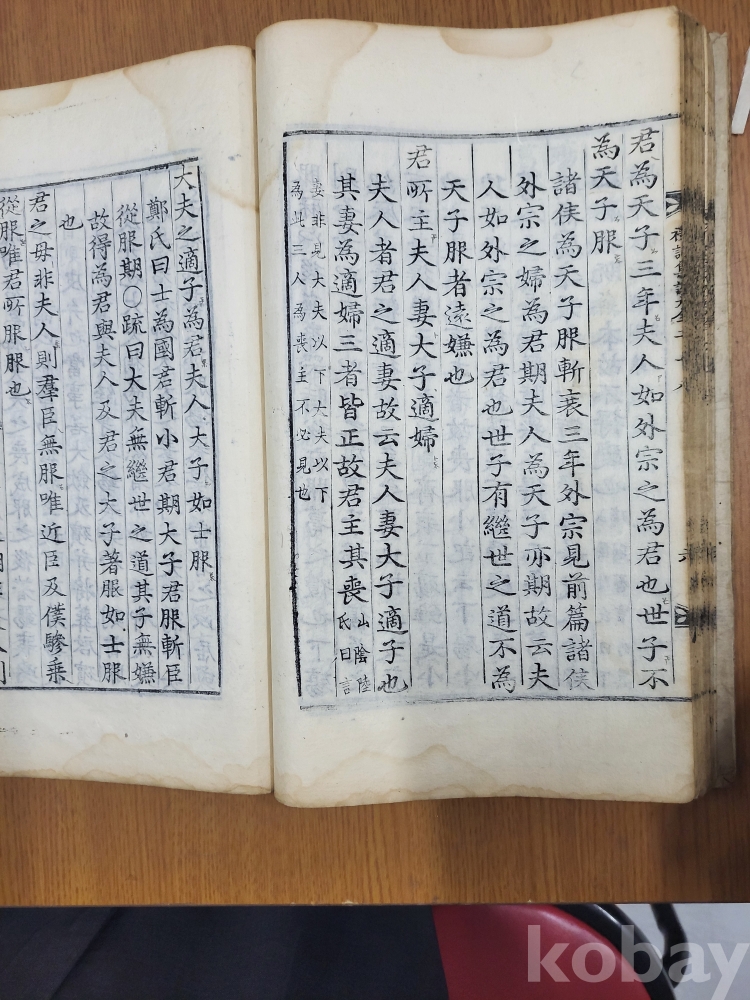 君為天子三年夫人如外宗之為君也世子不
為天子服
諸侯為天子服斬衰三年外宗見前篇諸侯
外宗之婦為君期夫人為天子亦期故云夫
人如外宗之為君也世子有繼世之道不為
天子服者遠嫌也
君所主夫人妻大子適婦
夫人者君之適妻故云夫人妻大子適子也
其妻為適婦三者皆正故君主其喪山陰陸
氏曰言
妻非見大夫以下大夫以下
為此三人為喪主不必見也
大夫之適子為君夫人大子如士服
鄭氏曰士為國君斬小君期大子君服斬臣
從服期○疏曰大夫無繼世之道其子無嫌
故得為君與夫人及君之大子著服如士服
也
君之母非夫人則羣臣無服唯近臣及僕驂乘
從服唯君所服服也
kobay